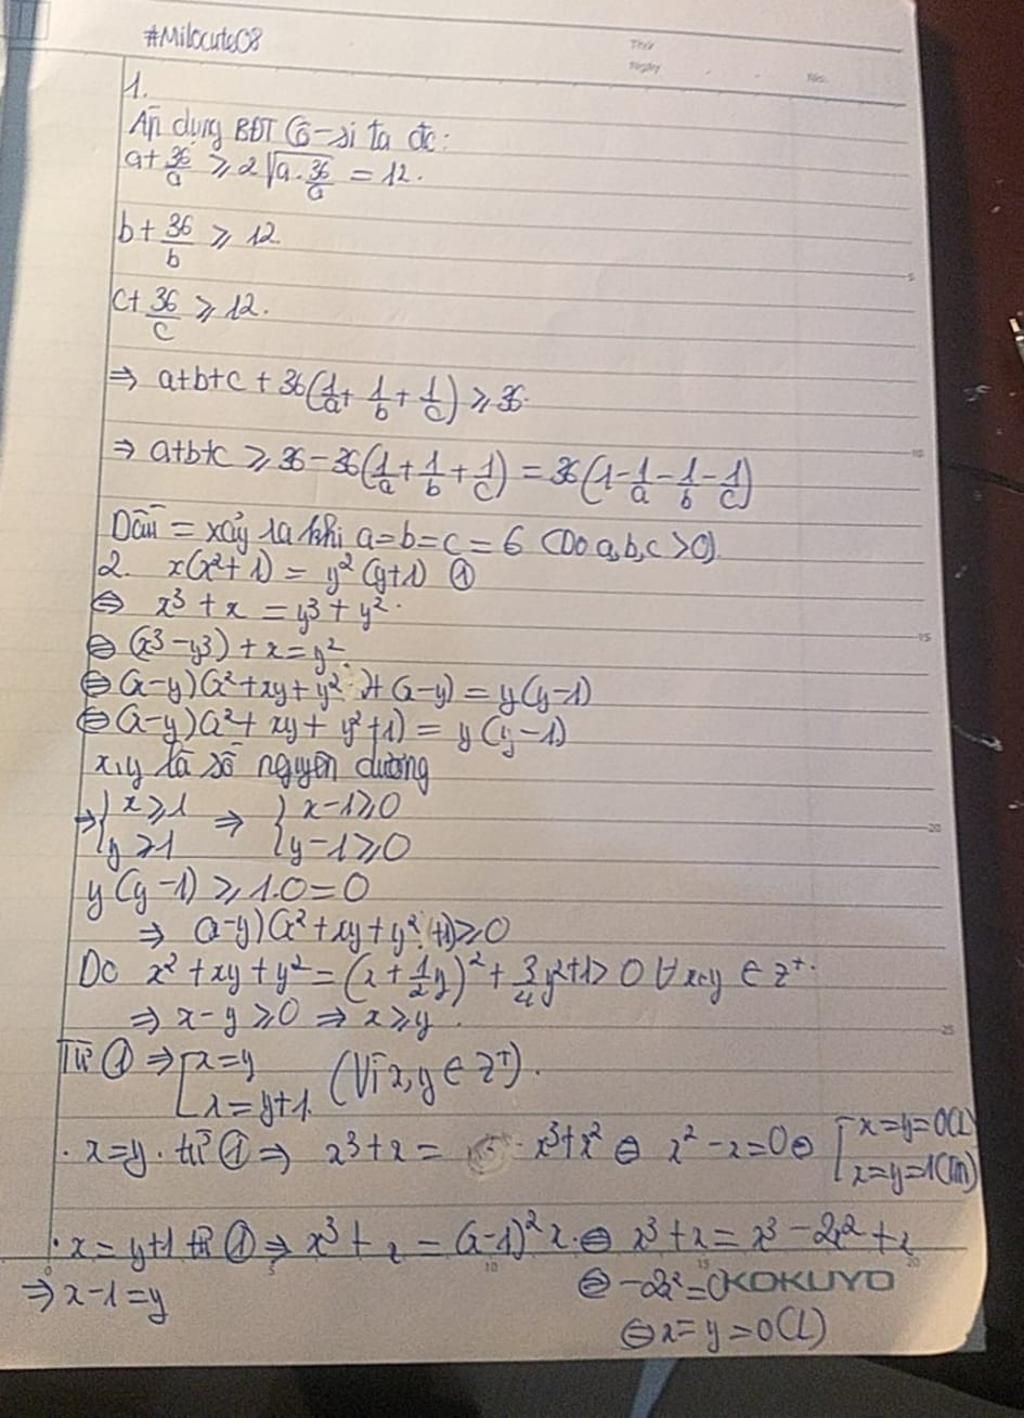 #Milocute08
Thứ
Ngày
No.
1.
Áp dụng BĐT Cô-si ta đc:
a+36/a ≥ 2√(a.36/a) = 12.
b+36/b ≥ 12
c+36/c ≥ 12.
⇒ a+b+c + 36(1/a+1/b+1/c) ≥ 36.
⇒ a+b+c ≥ 36-36(1/a+1/b+1/c) = 36(1-1/a-1/b-1/c)
Dấu = xảy ra khi a=b=c=6 (Do a,b,c >0)
2. x(x²+1) = y²(y+1) ①
⇔ x³+x = y³+y².
⇔ (x³-y³)+x=y².
⇔ (x-y)(x²+xy+y²)+(x-y)=y(y-1)
⇔ (x-y)(x²+xy+y²+1)=y(y-1)
x,y là số nguyên dương
⇒ { x≥1 ⇒ { x-1≥0
{ y≥1 { y-1≥0
y(y-1) ≥ 1.0=0
⇒ (x-y)(x²+xy+y²+1)≥0
Do x²+xy+y²=(x+1/2y)²+3/4y²+1>0 ∀ x,y ∈ Z⁺.
⇒ x-y≥0 ⇒ x≥y.
Từ ① ⇒ [ x=y (Vì x,y ∈ Z⁺).
[ x=y+1.
. x=y. từ ① ⇒ x³+x = x³+x² ⇔ x²-x=0 ⇔ [ x=y=0(L)
[ x=y=1(TM)
. x=y+1 từ ① ⇒ x³+x = (x-1)²x. ⇔ x³+x=x³-2x²+x
⇒ x-1=y
⇔ -2x²=0
KOKUYO
⇔ x=y=0(L)
5
10
15
20
25
0
5
10
15
20